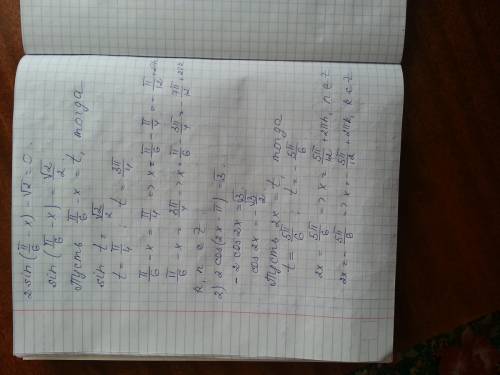 2 sin (π/6 - x) - √2 = 0
sin (π/6 - x) = √2/2
Пусть π/6 - x = t, тогда
sin t = √2/2
t = π/4 ; t = 3π/4
π/6 - x = π/4 => x = π/6 - π/4 = - π/12 + 2πk
π/6 - x = 3π/4 => x = π/6 - 3π/4 = 7π/12 + 2πn
k, n ∈ Z
2) 2 cos (2x - π) = √3
- 2 cos 2x = √3
cos 2x = - √3/2
Пусть 2x = t, тогда
t = 5π/6 ; t = - 5π/6
2x = 5π/6 => x = 5π/12 + 2πn, n ∈ Z
2x = - 5π/6 => x = - 5π/12 + 2πk, k ∈ Z